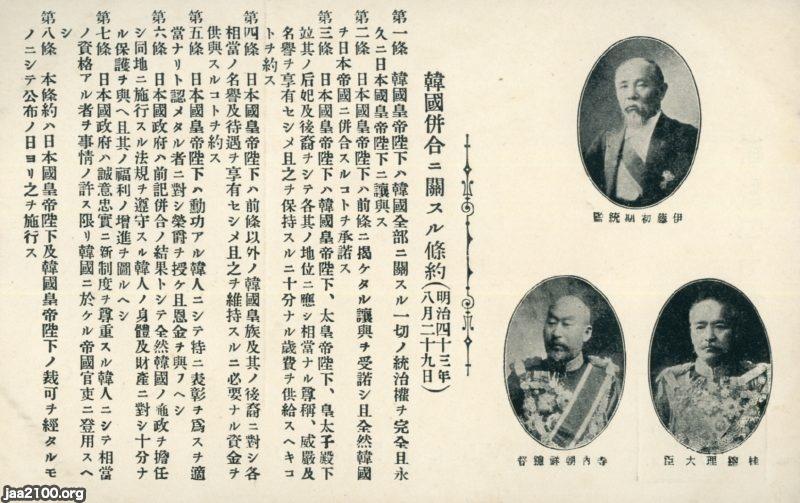 伊藤初期統監
桂總理大臣
寺內朝鮮總督
韓國併合ニ關スル條約(明治四十三年
八月二十九日)
第一條 韓國皇帝陛下ハ韓國全部ニ關スル一切ノ統治權ヲ完全且永
久ニ日本國皇帝陛下ニ讓與ス
第二條 日本國皇帝陛下ハ前條ニ揭ケタル讓與ヲ受諾シ且全然韓國
ヲ日本帝國ニ併合スルコトヲ承諾ス
第三條 日本國皇帝陛下ハ韓國皇帝陛下、太皇帝陛下、皇太子殿下
竝其ノ后妃及後裔ヲシテ各其ノ地位ニ應シ相當ナル尊稱、威嚴及
名譽ヲ享有セシメ且之ヲ保持スルニ十分ナル歲費ヲ供給スヘキコ
トヲ約ス
第四條 日本國皇帝陛下ハ前條以外ノ韓國皇族及其ノ後裔ニ對シ各
相當ノ名譽及待遇ヲ享有セシメ且之ヲ維持スルニ必要ナル資金ヲ
供與スルコトヲ約ス
第五條 日本國皇帝陛下ハ勳功アル韓人ニシテ特ニ表彰ヲ爲スヲ適
當ナリト認メタル者ニ對シ榮爵ヲ授ケ且恩金ヲ與フヘシ
第六條 日本國政府ハ前記併合ノ結果トシテ全然韓國ノ施政ヲ擔任
シ同地ニ施行スル法規ヲ遵守スル韓人ノ身體及財產ニ對シ十分ナ
ル保護ヲ與ヘ且其ノ福利ノ增進ヲ圖ルヘシ
第七條 日本國政府ハ誠意忠實ニ新制度ヲ尊重スル韓人ニシテ相當
ノ資格アル者ヲ事情ノ許ス限リ韓國ニ於ケル帝國官吏ニ登用スヘ
シ
第八條 本條約ハ日本國皇帝陛下及韓國皇帝陛下ノ裁可ヲ經タルモ
ノニシテ公布ノ日ヨリ之ヲ施行ス
jaa2100.org